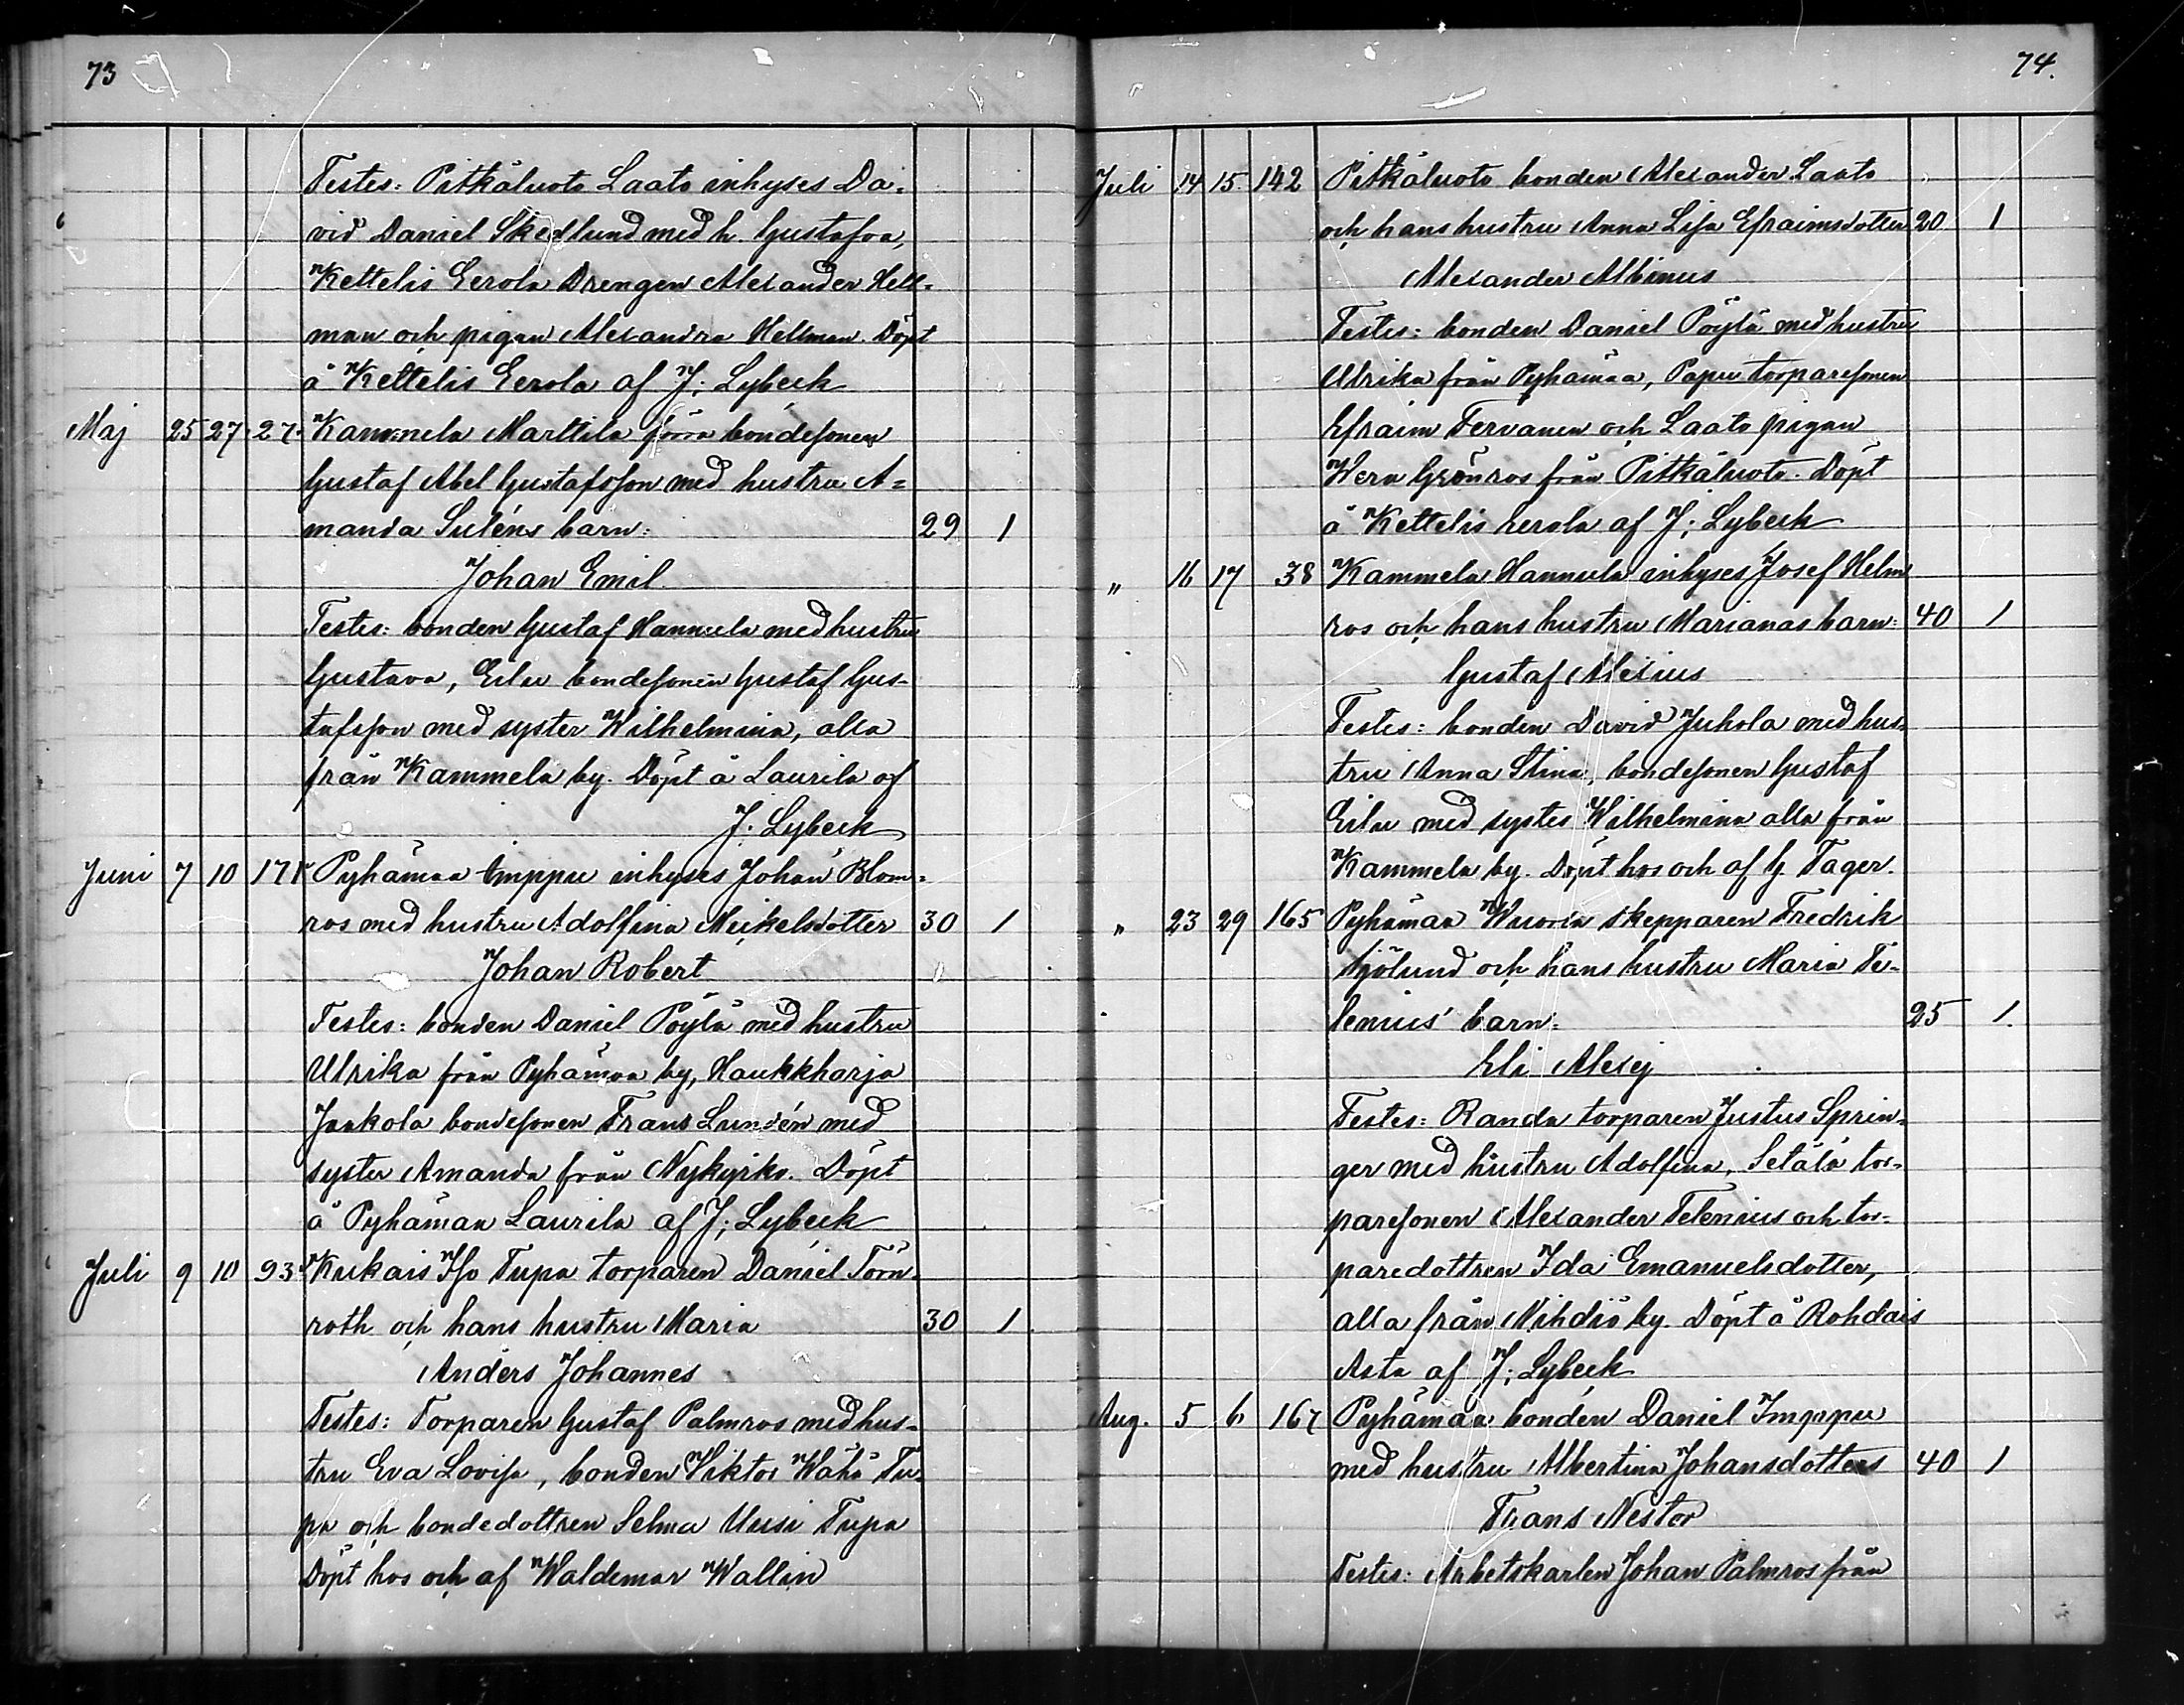 73
Testes: Pitkäluoto Laato inhyses Da-
vid Daniel Skedlund med h. Gustafva,
Kettelis Eerola Drengen Alexander Hell-
man och pigan Alexandra Hellman. Döpt
å Kettelis Eerola af J. Lybeck
Maj 25 27 27. Kammela Marttila förra bondesonen
Gustaf Abel Gustafsson med hustru A-
manda Suléns barn: 29 1
Johan Emil
Testes: bonden Gustaf Hannula med hustru
Gustava, Eilu bondesonen Gustaf Gus-
tafsson med syster Wilhelmina, alla
från Kammela by. Döpt å Laurila af
J. Lybeck
Juni 7 10 171 Pyhämaa Imppu inhyses Johan Blom-
ros med hustru Adolfina Mickelsdotter 30 1
Johan Robert
Testes: bonden Daniel Pöylä med hustru
Ulrika från Pyhämaa by, Haukkharja
Jaakola bondesonen Frans Lundén med
syster Amanda från Nykyrko. Döpt
å Pyhämaa Laurila af J. Lybeck
Juli 9 10 93 Kukais Iso Tupa torparen Daniel Törn-
roth och hans hustru Maria 30 1
Anders Johannes
Testes: Torparen Gustaf Palmros med hus-
tru Eva Lovisa, bonden Viktor Wähä Tu-
pa och bondedottren Selma Uusi Tupa
Döpt hos och af Waldemar Wallin
74.
Juli 14 15. 142 Pitkäluoto bonden Alexander Laato
och hans hustru Anna Lisa Efraimsdotter 20 1
Alexander Albinus
Testes: bonden Daniel Pöylä med hustru
Ulrika från Pyhämaa, Papu torparesonen
Efraim Tervanen och Laato pigan
Wera Grönros från Pitkäluoto. Döpt
å Kettelis Eerola af J. Lybeck
" 16 17 38 Kammela Hannula inhyses Josef Helm
ros och hans hustru Marianas barn: 40 1
Gustaf Alexius
Testes: bonden David Juhola med hus-
tru Anna Stina, bondesonen Gustaf
Eilu med syster Wilhelmina alla från
Kammela by. Döpt hos och af G. Tager.
" 23 29 165 Pyhämaa Wuorla skepparen Fredrik
Sjölund och hans hustru Maria Te-
lenius' barn: 25 1.
Eli Alexej
Testes: Randa torparen Justus Sprin-
ger med hustru Adolfina, Setälä tor-
paresonen Alexander Telenius och tor-
paredottren Ida Emanuelsdotter,
alla från Nihdiö by. Döpt å Rohdais
Asta af J. Lybeck
Aug. 5 6 167 Pyhämaa bonden Daniel Imppu
med hustru Albertina Johansdotters 40 1
Frans Nestor
Testes: Arbetskarlen Johan Palmros från